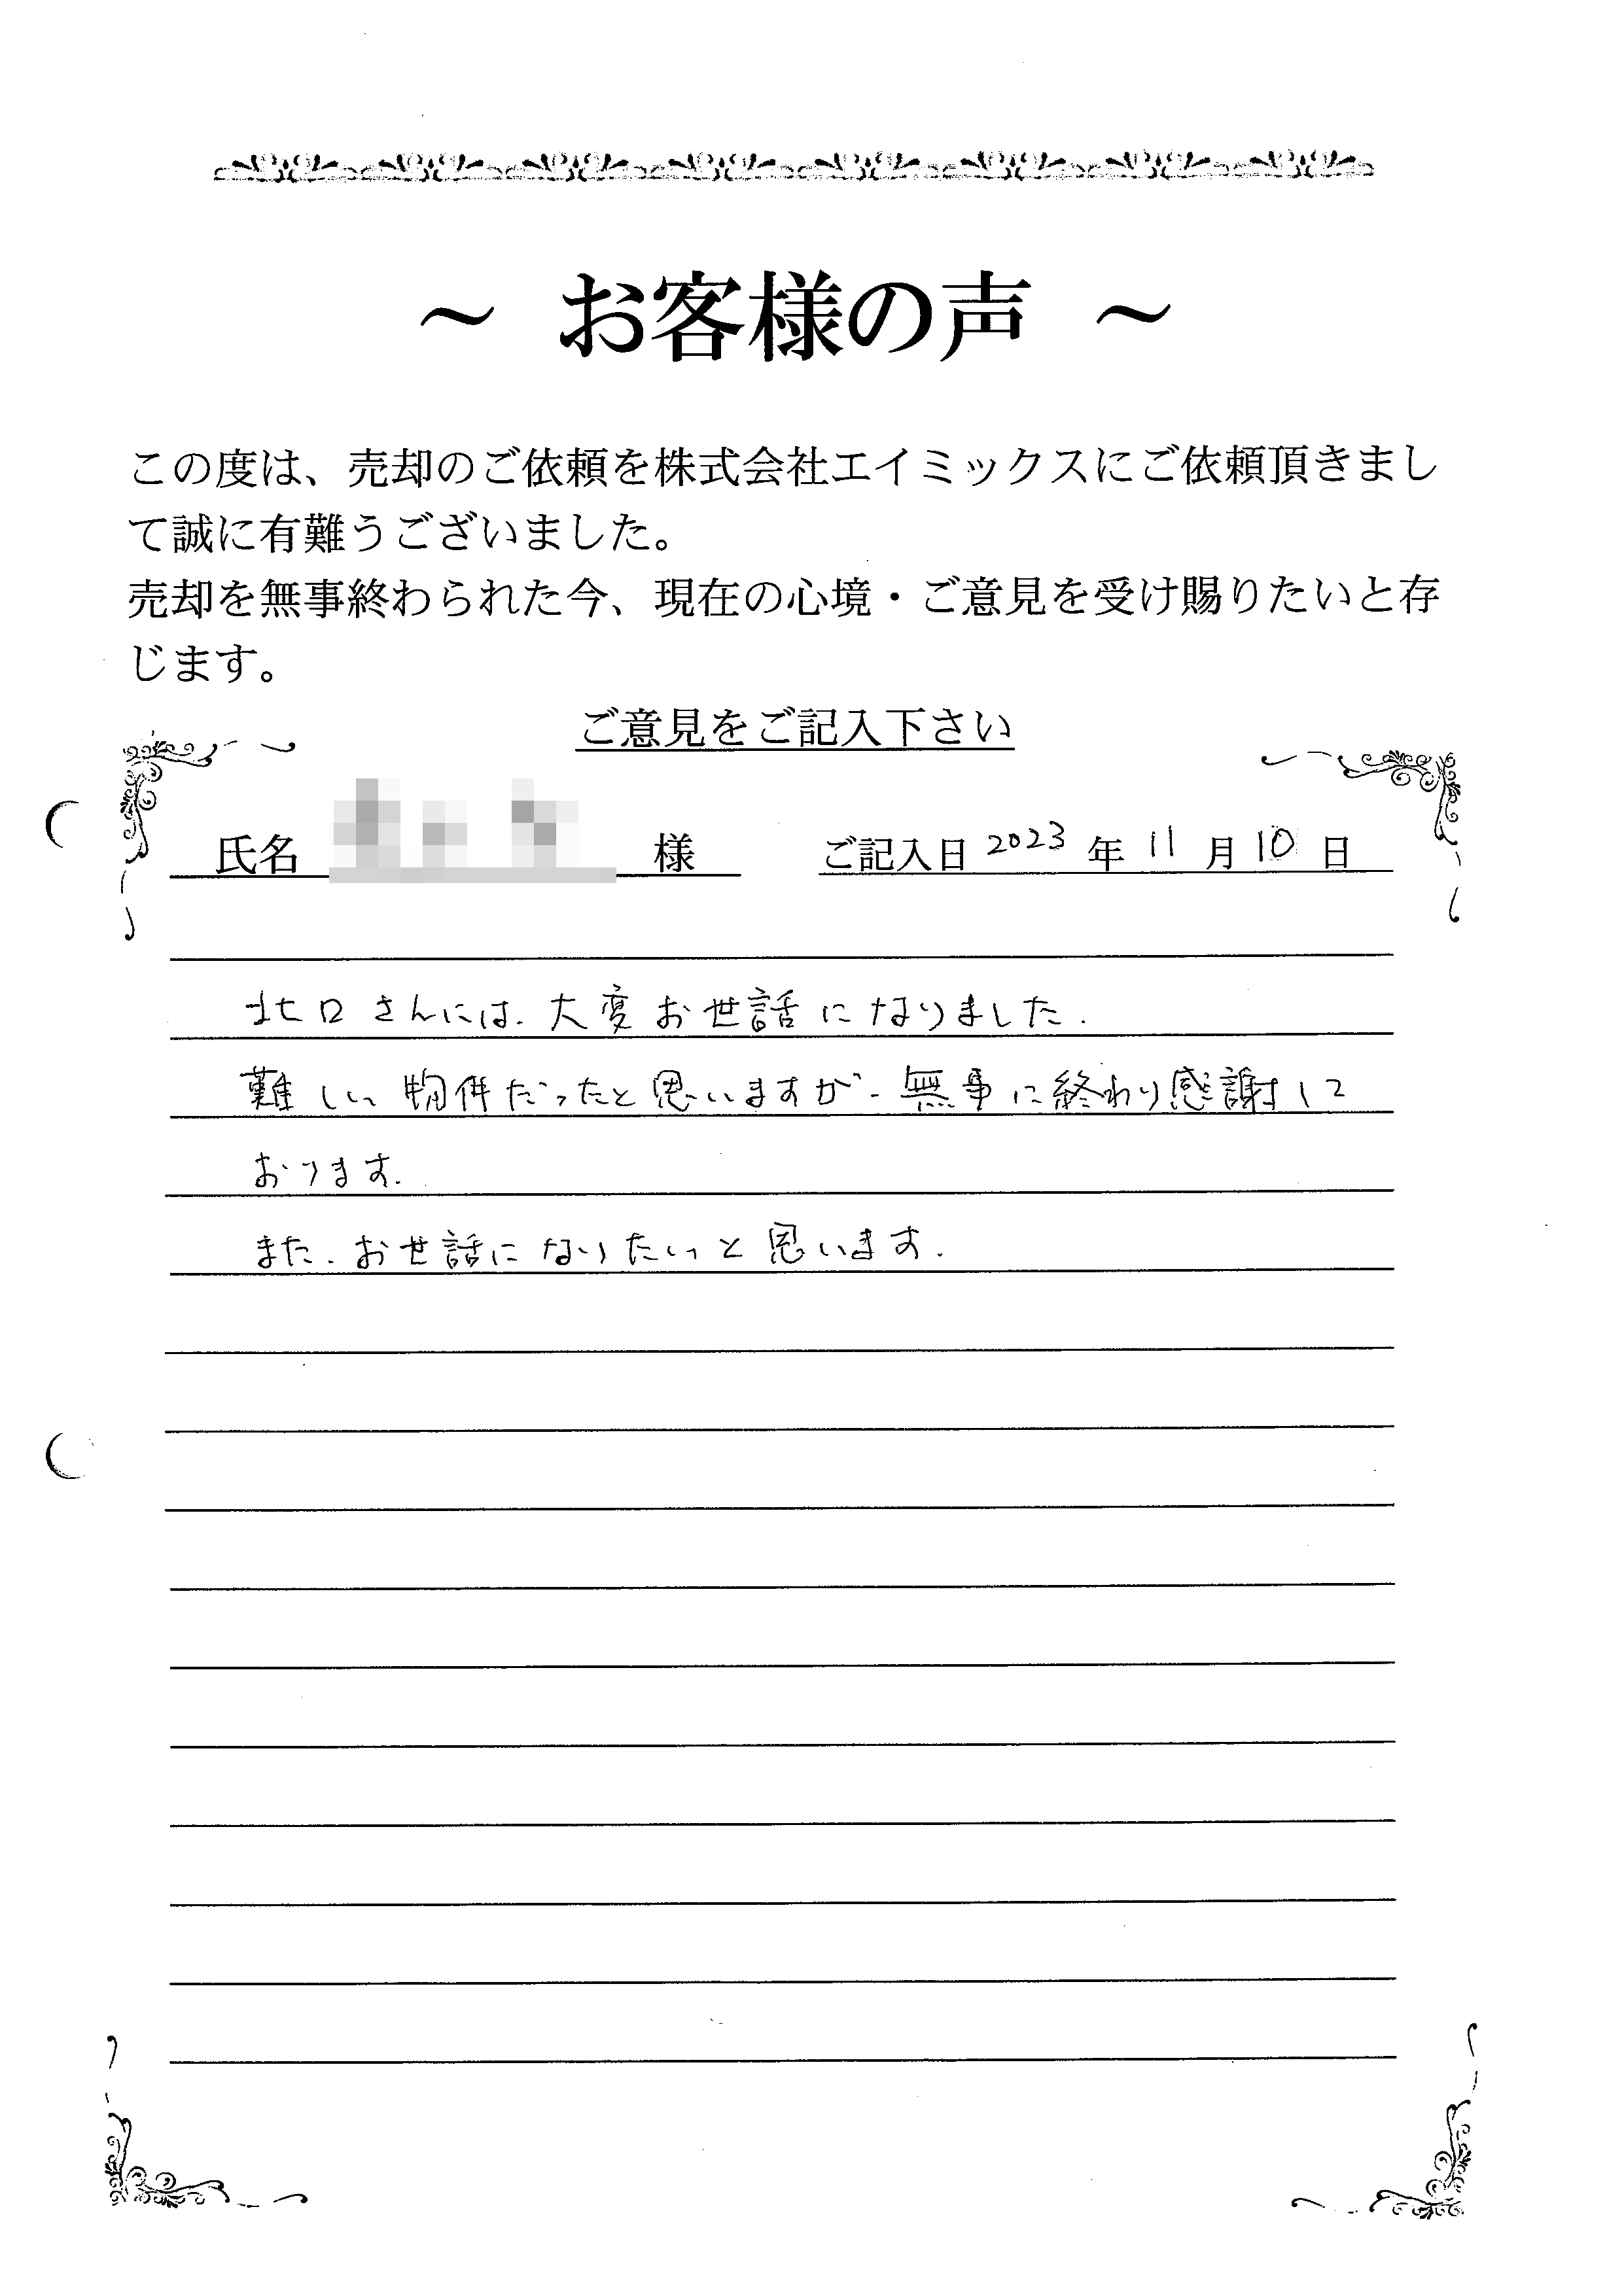 ～ お客様の声 ～
この度は、売却のご依頼を株式会社エイミックスにご依頼頂きまし
て誠に有難うございました。
売却を無事終わられた今、現在の心境・ご意見を受け賜りたいと存
じます。
ご意見をご記入下さい
氏名 様 ご記入日 2023 年 11 月 10 日
北口さんには、大変お世話になりました.
難しい物件だったと思いますが、無事に終わり感謝して
おります.
また、お世話になりたいと思います.